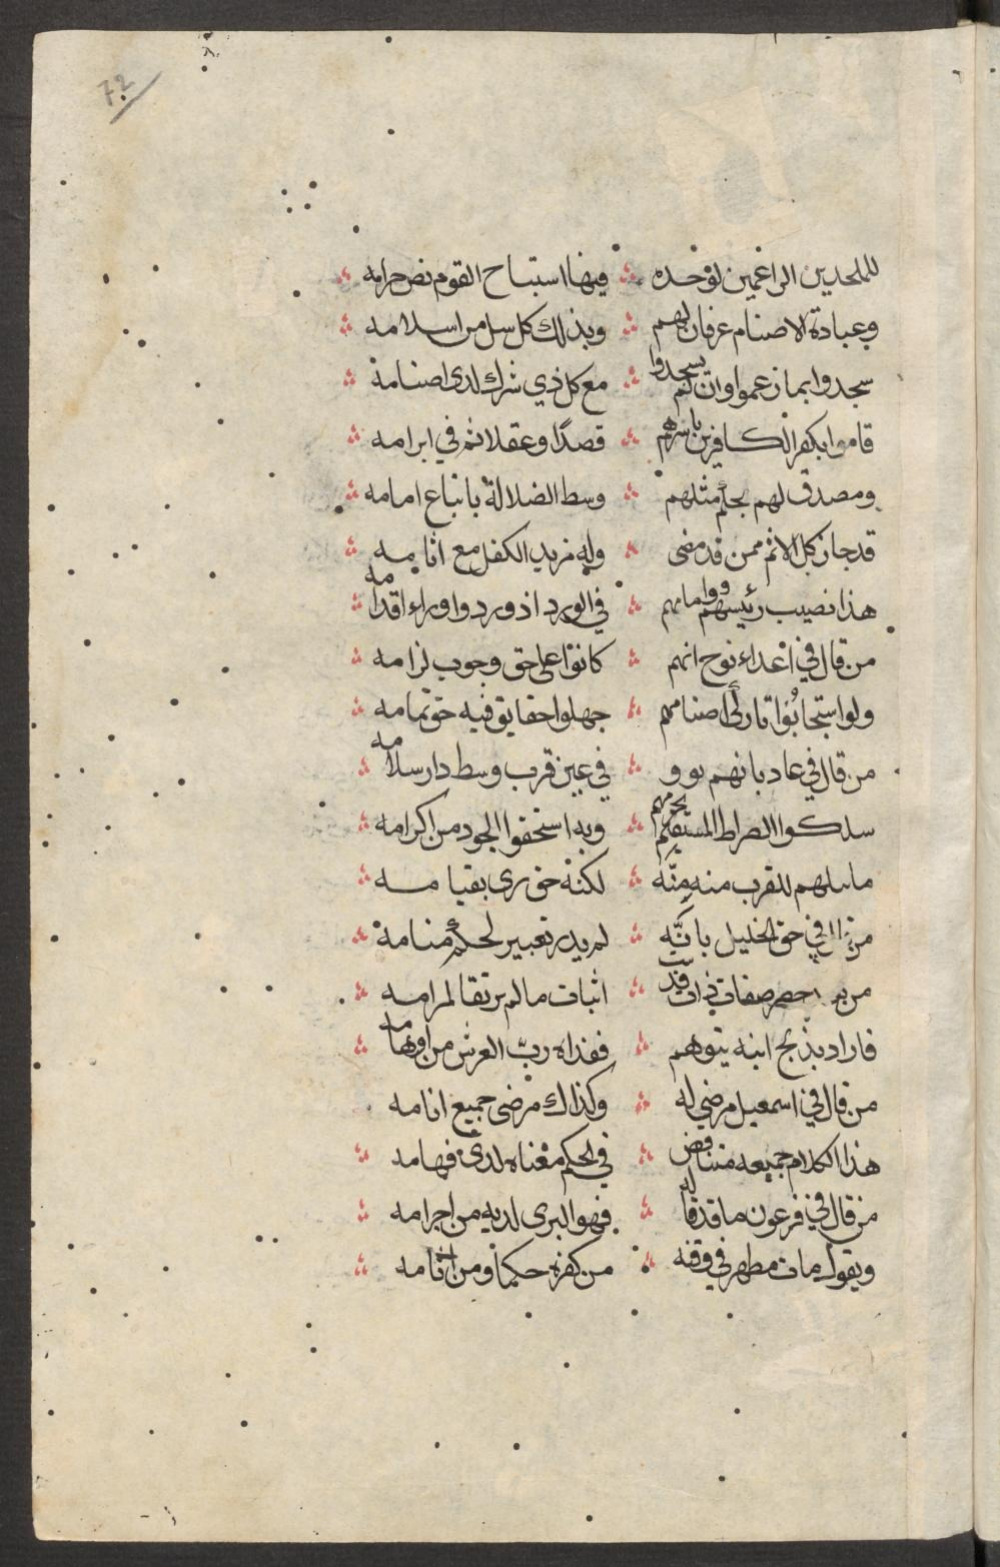 72
للملحدين الراغمين لوحده فيها استباح القوم نص حرامه
وعبادة الاصنام عرفان لهم وبذلك كل سل من اسلامه
سجدوا بما زعموا وان لم يسجدوا مع كل ذي شرك لدى اصنامه
قاموا بكفر الكافرين باسرهم قصدًا وعقلا ثم في ابرامه
ومصدق لهم بحكم مثلهم وسط الضلالة باتباع امامه
قد جاز كل الاثم ممن قد مضى وله مزيد الكفل مع اثامه
هذا نصيب رئيسهم وامامهم في الورد اذ وردوا وراء اقدامه
من قال في اعداء نوح انهم كانوا على حق وجوب لزامه
ولو استجابُوا تاركي اصنامهم جهلوا حقايق فيه حق تمامه
من قال في عاد بانهم في عين قرب وسط دار سلامه
سلكوا الصراط المستقيم بجرمهم وبه استحقوا الجود من اكرامه
للقرب منه مِنّه لكنه حق بقيامه
من في حق الخليل بانّه لم يدر تعبير لحكم منامه
من صفات ذات اثبات ما لم يرتقا لمرامه
فاراد بذبح ابنه بتوهم ففداه ربّ العرش من اوهامه
من قال في اسمعيل مرضي له وكذاك مرضى جميع انامه
هذا الكلام جميعه متناقض في الحكم معناه لدى فهامه
من قال في فرعون ما قد قاله فهو البرى لديه من اجرامه
ويقول مات مطهر في وقفه من كفره حكما ومن اثامه